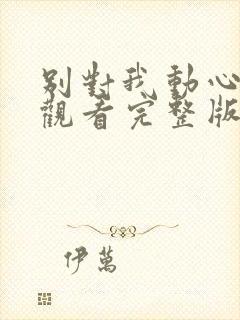 别對我動心
觀看完整版
伊萬